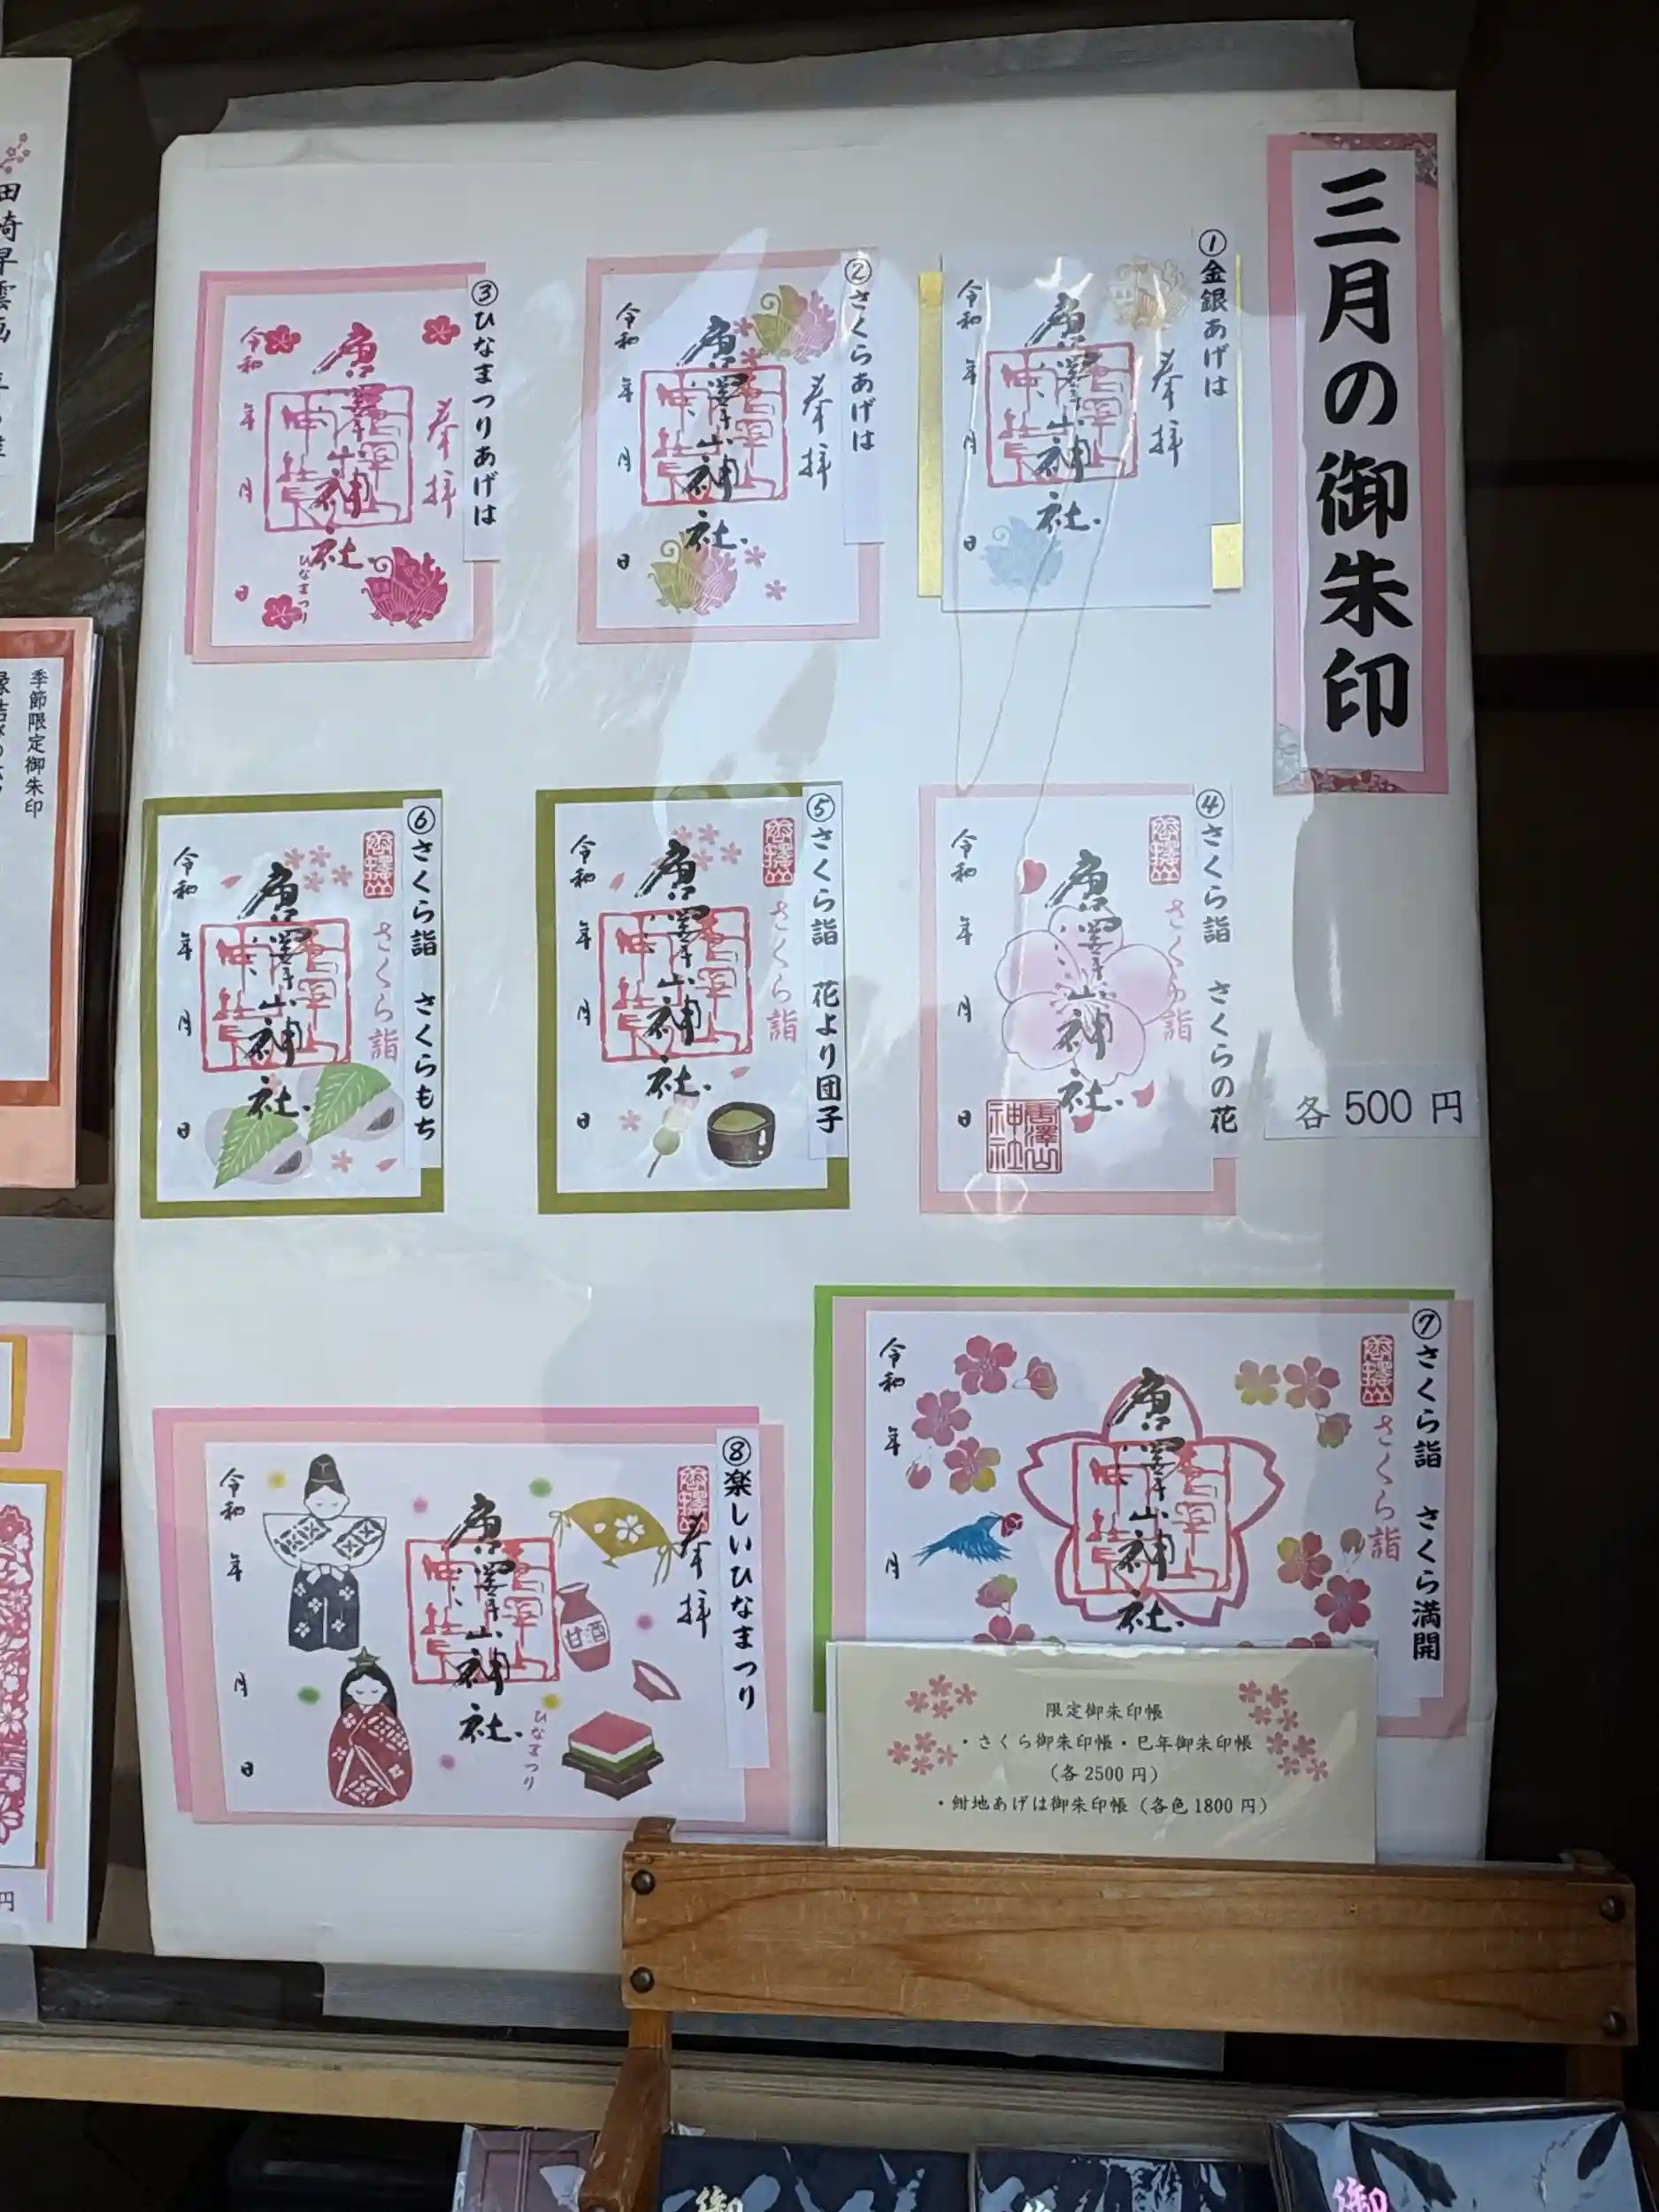 三月の御朱印
各 500 円
①金銀あげは
奉拝
唐澤山神社
令和 年 月 日
②さくらあげは
奉拝
唐澤山神社
令和 年 月 日
③ひなまつりあげは
奉拝
唐澤山神社
ひなまつり
令和 年 月 日
④さくら詣 さくらの花
さくら詣
唐澤山神社
唐澤山神社
令和 年 月 日
⑤さくら詣 花より団子
さくら詣
唐澤山神社
令和 年 月 日
⑥さくら詣 さくらもち
さくら詣
唐澤山神社
令和 年 月 日
⑦さくら詣 さくら満開
さくら詣
唐澤山神社
令和 年 月
⑧楽しいひなまつり
奉拝
甘酒
唐澤山神社
ひなまつり
令和 年 月 日
限定御朱印帳
・さくら御朱印帳・巳年御朱印帳
（各 2500 円）
・紺地あげは御朱印帳（各色 1800 円）
季節限定御朱印
田崎早雲
円
御
御